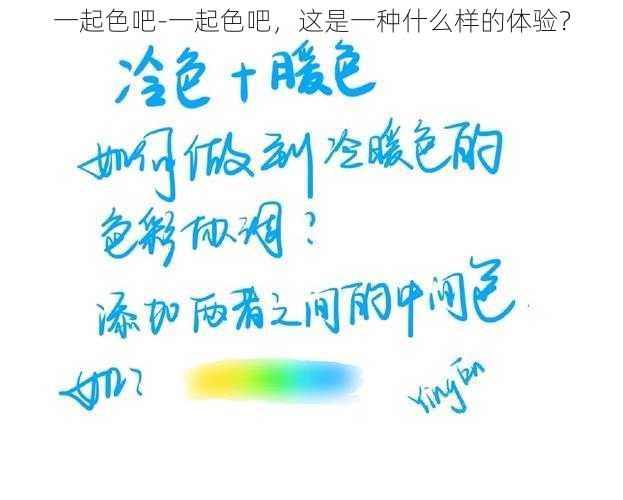 一起色吧-一起色吧，这是一种什么样的体验？
冷色+暖色
如何做到冷暖色的
色彩协调？
添加两者之间的中间色.
如？